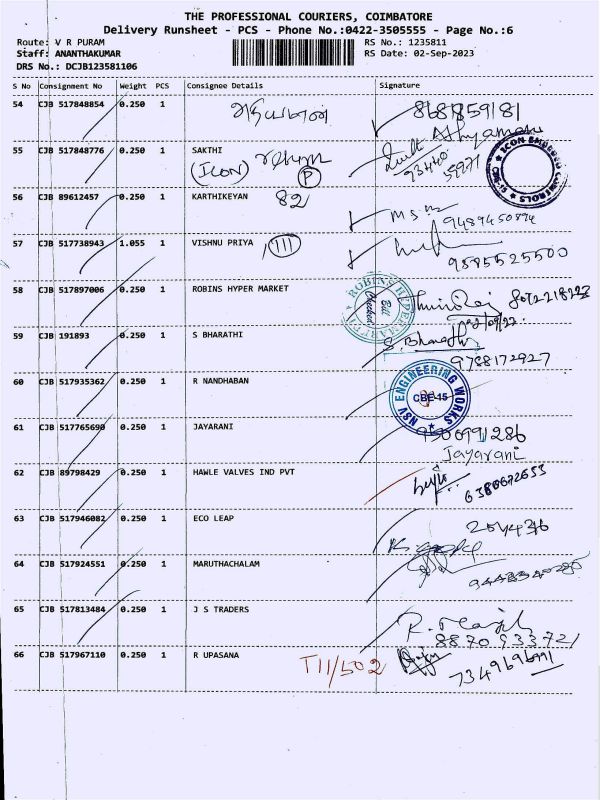 THE PROFESSIONAL COURIERS, COIMBATORE
Delivery Runsheet - PCS - Phone No.:0422-3505555 - Page No.:6
Route: V R PURAM RS No.: 1235811
Staff: ANANTHAKUMAR RS Date: 02-Sep-2023
DRS No.: DCJB123581106
S No Consignment No Weight PCS Consignee Details Signature
54 CJB 517848854 0.250 1 8681859181
55 CJB 517848776 0.250 1 SAKTHI
(ICON) return P 93440
ICON EMBEDDED CONTROLS
56 CJB 89612457 0.250 1 KARTHIKEYAN 82
9489450894
57 CJB 517738943 1.055 1 VISHNU PRIYA 111
9585525500
58 CJB 517897006 0.250 1 ROBINS HYPER MARKET
ROBINS HYPER MARKET
Bill Checked
59 CJB 191893 0.250 1 S BHARATHI S. Bharathi
9788172927
60 CJB 517935362 0.250 1 R NANDHABAN
NSV ENGINEERING WORKS
CBE-45
61 CJB 517765690 0.250 1 JAYARANI
Jayarani
62 CJB 89798429 0.250 1 HAWLE VALVES IND PVT
6380672653
63 CJB 517946082 0.250 1 ECO LEAP
64 CJB 517924551 0.250 1 MARUTHACHALAM
65 CJB 517813484 0.250 1 J S TRADERS
8870933721
66 CJB 517967110 0.250 1 R UPASANA T11/502